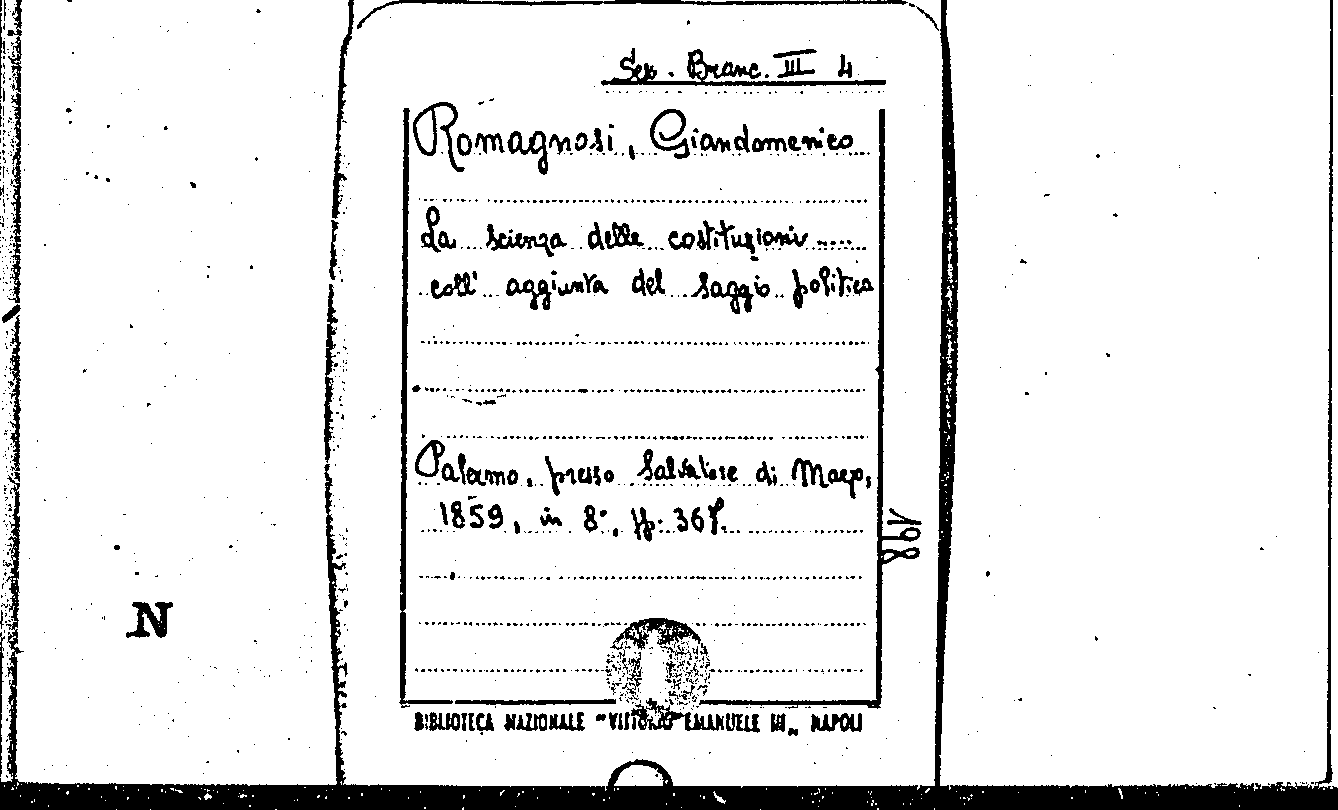 Branc. III 4
Romagnosi, Giandomenico
La scienza delle costituzioni .....
coll' aggiunta del saggio politica
Palermo, presso Salvatore di Marzo,
1859, in 8°, pp. 367.
198
N
BIBLIOTECA NAZIONALE "VITTORIO EMANUELE III„ NAPOLI